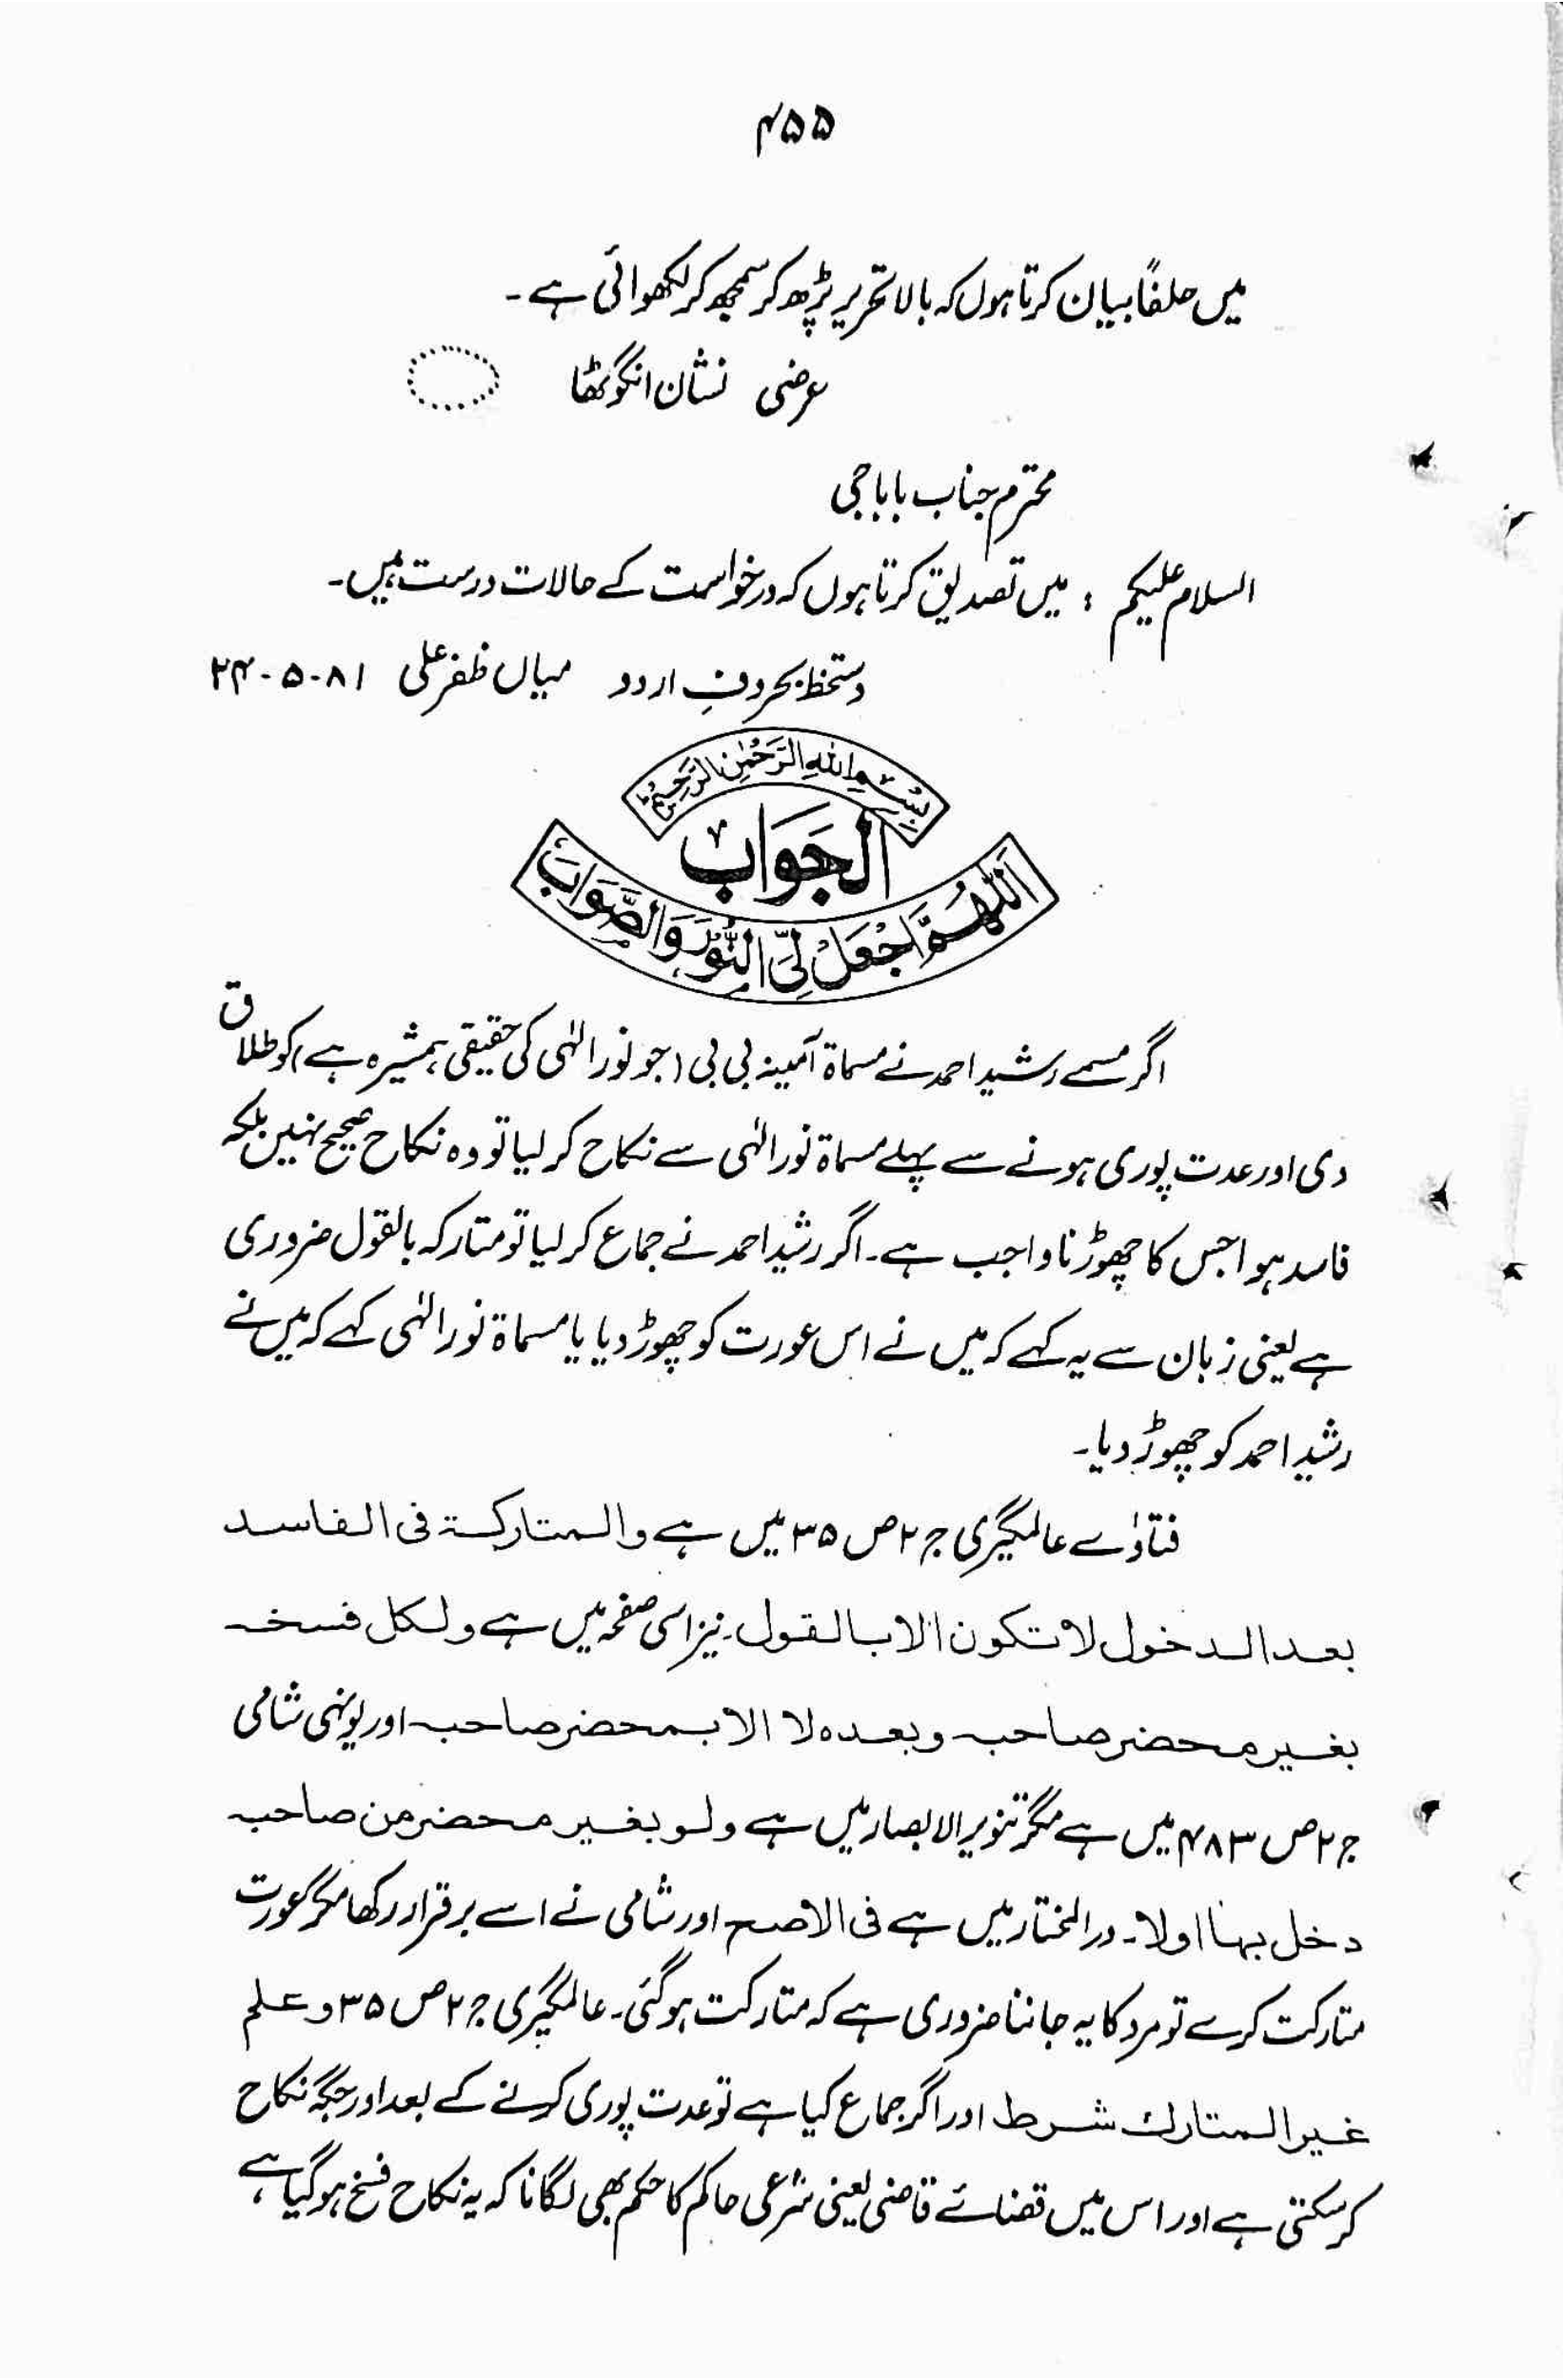 ۴۵۵
میں حلفاً بیان کرتا ہوں کہ بالا تحریر پڑھ کر سمجھ کر لکھوائی ہے۔
عرضی نشان انگوٹھا
محترم جناب باباجی
السلام علیکم ؛ میں تصدیق کرتا ہوں کہ درخواست کے حالات درست ہیں۔
دستخط بحروفِ اردو میاں ظفر علی ۸۱-۵-۲۴
بِسْمِ اللهِ الرَّحْمٰنِ الرَّحِيْمِ
اَلجَوَابُ
اَللّٰهُمَّ اجْعَلْ لِيَ النُّوْرَ وَالصَّوَابَ
اگر مسمے رشید احمد نے مسماۃ آمینہ بی بی (جو نور الٰہی کی حقیقی ہمشیرہ ہے) کو طلاق
دی اور عدت پوری ہونے سے پہلے مسماۃ نور الٰہی سے نکاح کر لیا تو وہ نکاح صحیح نہیں بلکہ
فاسد ہوا جس کا چھوڑنا واجب ہے۔ اگر رشید احمد نے جماع کر لیا تو متارکہ بالقول ضروری
ہے یعنی زبان سے یہ کہے کہ میں نے اس عورت کو چھوڑ دیا یا مسماۃ نور الٰہی کہے کہ میں نے
رشید احمد کو چھوڑ دیا۔
فتاوٰے عالمگیری ج ۲ ص ۳۵ میں ہے والمتاركة فی الفاسد
بعد الدخول لا تكون الا بالقول۔ نیز اسی صفحہ میں ہے ولكل فسخه
بغير محضر صاحبه وبعده لا الا بمحضر صاحبه اور یونہی شامی
ج ۲ ص ۴۸۳ میں ہے مگر تنویر الابصار میں ہے ولو بغير محضر من صاحبه
دخل بها اولا۔ در المختار میں ہے فی الاصح اور شامی نے اسے برقرار رکھا مگر عورت
متارکت کرے تو مرد کا یہ جاننا ضروری ہے کہ متارکت ہوگئی۔ عالمگیری ج ۲ ص ۳۵ و علم
غير المتارك شرط اور اگر جماع کیا ہے تو عدت پوری کرنے کے بعد اور جگہ نکاح
کر سکتی ہے اور اس میں قضائے قاضی یعنی شرعی حاکم کا حکم بھی لگانا کہ یہ نکاح فسخ ہو گیا ہے،